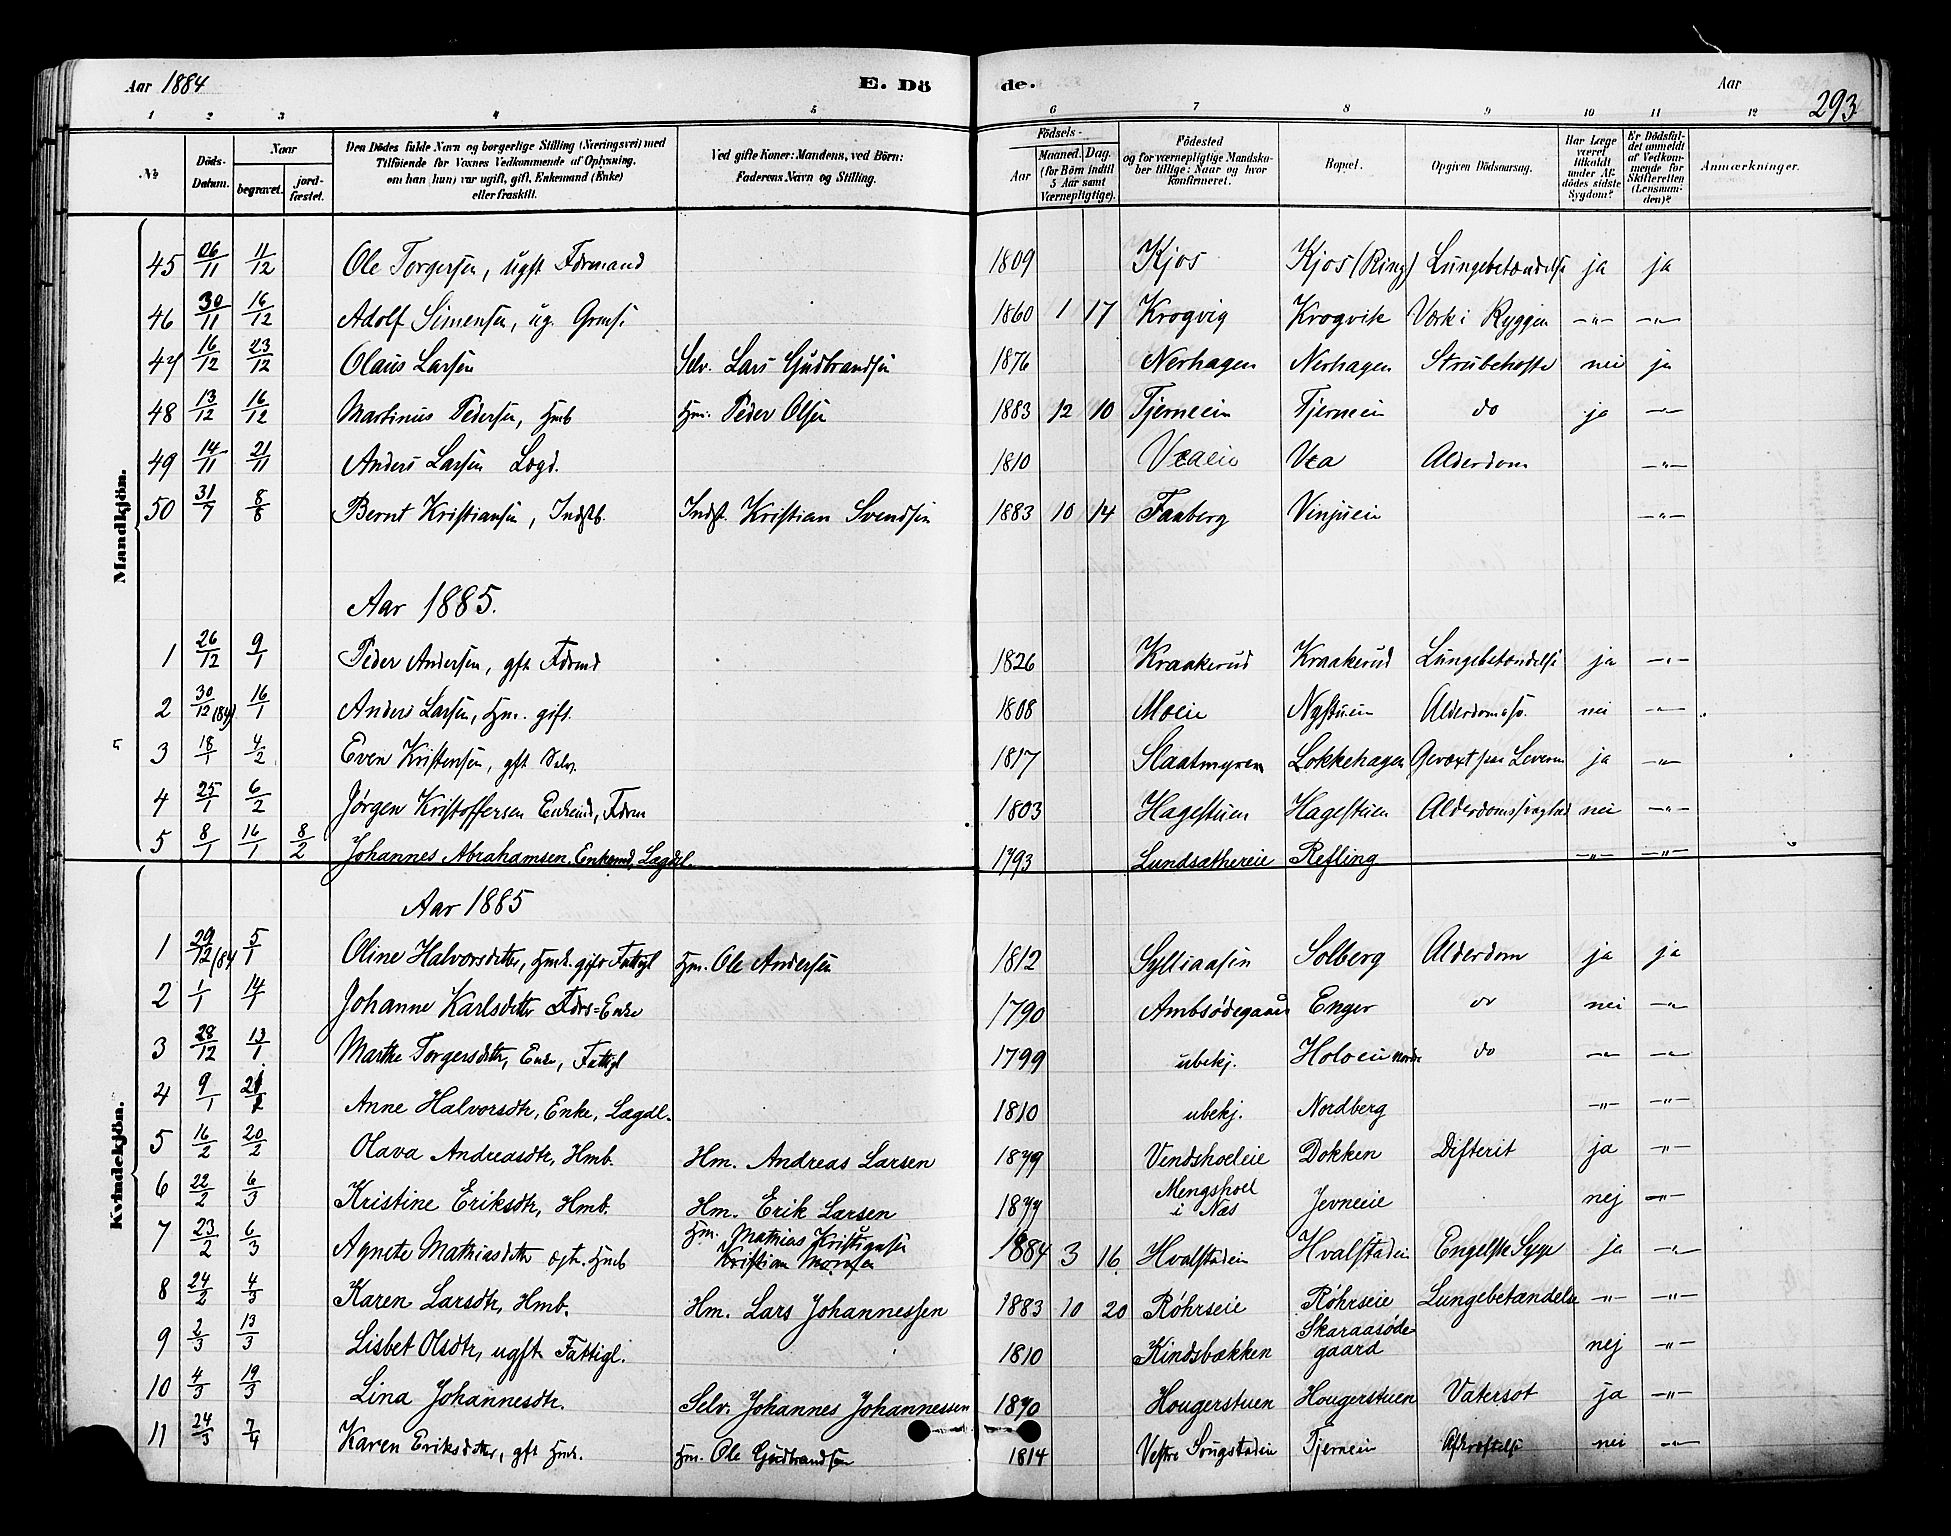 Aar 1884 E. Dö de. Aar 293
1 2 3 4 5 6 7 8 9 10 11 12
№ Döds-Datum. Naar begravet. jordfæstet. Den Dödes fulde Navn og borgerlige Stilling (Næringsvei) med Tilföiende for Voxnes Vedkommende af Oplysning, om han (hun) var ugift, gift, Enkemand (Enke) eller fraskilt. Ved gifte Koner: Mandens, ved Börn: Faderens Navn og Stilling. Födsels- Aar Maaned. Dag. (for Börn indtil 5 Aar samt Værnepligtige). Födested og for værnepligtige Mandskaber tillige: Naar og hvor konfirmeret. Bopæl. Opgiven Dödsaarsag. Har Læge været tilkaldt under Afdödes sidste Sygdom? Er Dödsfaldet anmeldt af Vedkommende for Skifteretten (Lensmanden)? Anmærkninger.
Mandkjön.
45 06/11 11/12 Ole Torgersen, ugft Fdrmand 1809 Kjos Kjos (Ring) Lungebetændelse ja ja
46 30/11 16/12 Adolf Simensen, ug. 1860 1 17 Krogvig Krogvik Værk i Ryggen -„- -„-
47 16/12 23/12 Olaus Larsen Selv. Lars Gudbrandsen 1876 Nerhagen Nerhagen Strubehoste nei ja
48 13/12 16/12 Martinus Pedersen, Hmb Hm. Peder Olsen 1883 12 10 Tjerneein Tjerneein do ja -„-
49 14/11 21/11 Anders Larsen Lægd. 1810 Veaeie Vea Alderdom -„-
50 31/7 8/8 Bernt Kristiansen, Indstb. Indst. Kristian Svendsen 1883 10 14 Faaberg Vinjuein -„-
Aar 1885.
1 26/12 9/1 Peder Andersen, gft Fdrmd 1826 Kraakerud Kraakerud Lungebetændelse ja -„-
2 30/12 (84) 16/1 Anders Larsen, Hm. gift. 1808 Moeie Nystuein Alderdomssv. nei -„-
3 18/1 4/2 Even Kristensen, gft Selv. 1817 Slaatmyren Lokkehagen Gevæxt paa Leveren ja -„-
4 25/1 6/2 Jørgen Kristoffersen Enkemd, Fdrm 1803 Hagestuen Hagestuen Alderdomssvaghed nei -„-
5 8/1 16/1 8/2 Johannes Abrahamsen. Enkemd, Lægdsl. 1793 Lundsæthereie Refling -„- -„-
Kvindekjön.
Aar 1885
1 29/12/84 5/1 Oline Halvorsdtter, Hmk. gift Fattigl Hm. Ole Andersen 1812 Sylliaasen Solberg Alderdom ja ja
2 1/1 14/1 Johanne Karlsdtter Fdrs=Enke 1790 Ambsødegaard Enger do nei -„-
3 28/12 13/1 Marthe Torgersdtr, Enke, Fattigl 1799 ubekj. Holoein nordre do -„- -„-
4 9/1 Anne Halvorsdtr, Enke, Lægdl. 1810 ubekj. Nordberg -„- -„-
5 16/2 20/2 Olava Andreasdtr, Hmb. Hm. Andreas Larsen 1879 Vindshoeleie Dokken Difterit ja -„-
6 22/2 6/3 Kristine Eriksdtr, Hmb. Hm. Erik Larsen 1877 Mengshoel i Næs Jevneeie nej -„-
7 23/2 6/3 Agnete Mathiasdatter ægte. Hmb Hm. Mathias Kristiansen Kristian 1884 3 16 Hvalstadein Hvalstadein Engelske Syge ja -„-
8 24/2 4/3 Karen Larsdtr, Hmb. Hm. Lars Johannessen 1883 10 20 Røhrseie Røhrseie Lungebetændelse -„- -„-
9 2/3 13/3 Lisbet Olsdtr, ugft. Fattigl. 1810 Kindsbækken Skaraasødegaard nej -„-
10 4/3 19/3 Lina Johannesdtr. Selv. Johannes Johannessen 1870 Hougerstuen Hougerstuen Vatersot ja -„-
11 24/3 7/4 Karen Eriksdatter, gft Hmk. Hm. Ole Gudbrandsen 1814 Vestre Tjerneein Afkræftelse nei -„-